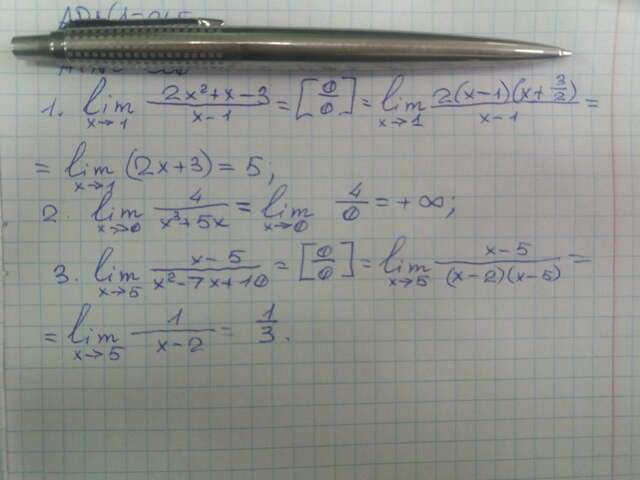 1. lim x→1 (2x²+x-3)/(x-1) = [0/0] = lim x→1 2(x-1)(x+3/2)/(x-1) =
= lim x→1 (2x+3) = 5;
2. lim x→0 4/(x³+5x) = lim x→0 4/0 = +∞;
3. lim x→5 (x-5)/(x²-7x+10) = [0/0] = lim x→5 (x-5)/((x-2)(x-5)) =
= lim x→5 1/(x-2) = 1/3.